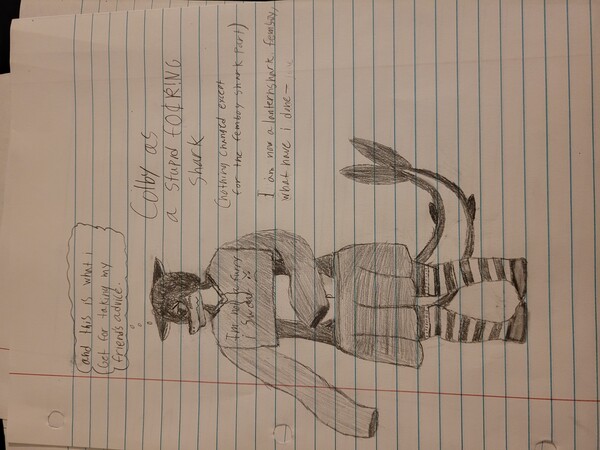 and this is what i
Get for taking my
friends advice.
Colby as
a stupid
shark
(nothing changed except
for the femboy shark part)
I am now a lanternshark femboy,
what have i done—
I'm not a furry
i swear